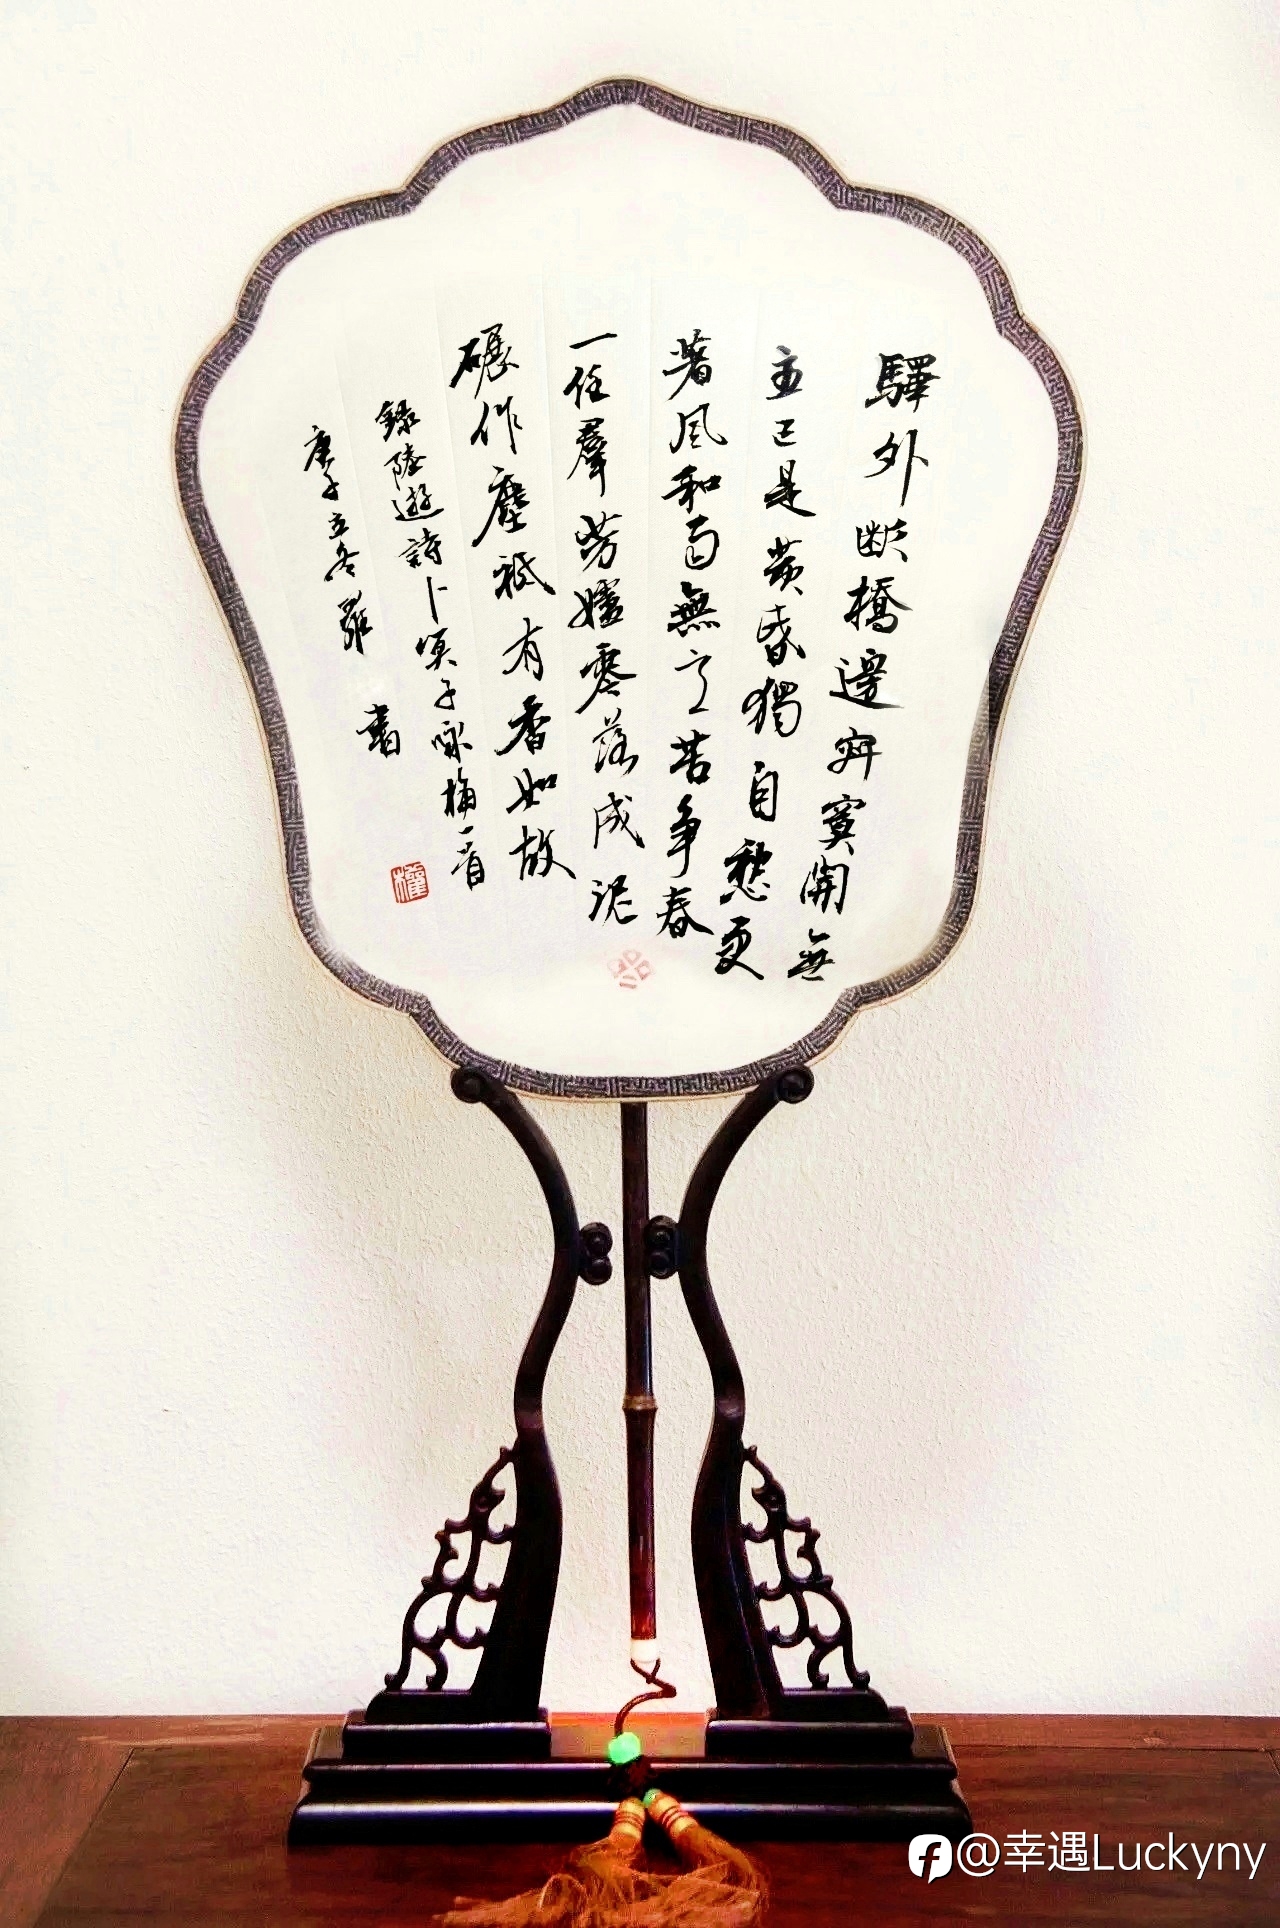 驛外断橋邊寂寞開無
主已是黄昏獨自愁更
著風和雨無意苦争春
一任羣芳妬零落成泥
碾作塵祗有香如故
錄陸遊詩卜算子咏梅一首
庚子立冬羅 書
@幸遇Luckyny